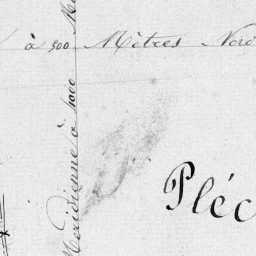 à 500 Mètres Nord
Méridienne à 1000 Mè
Pléc